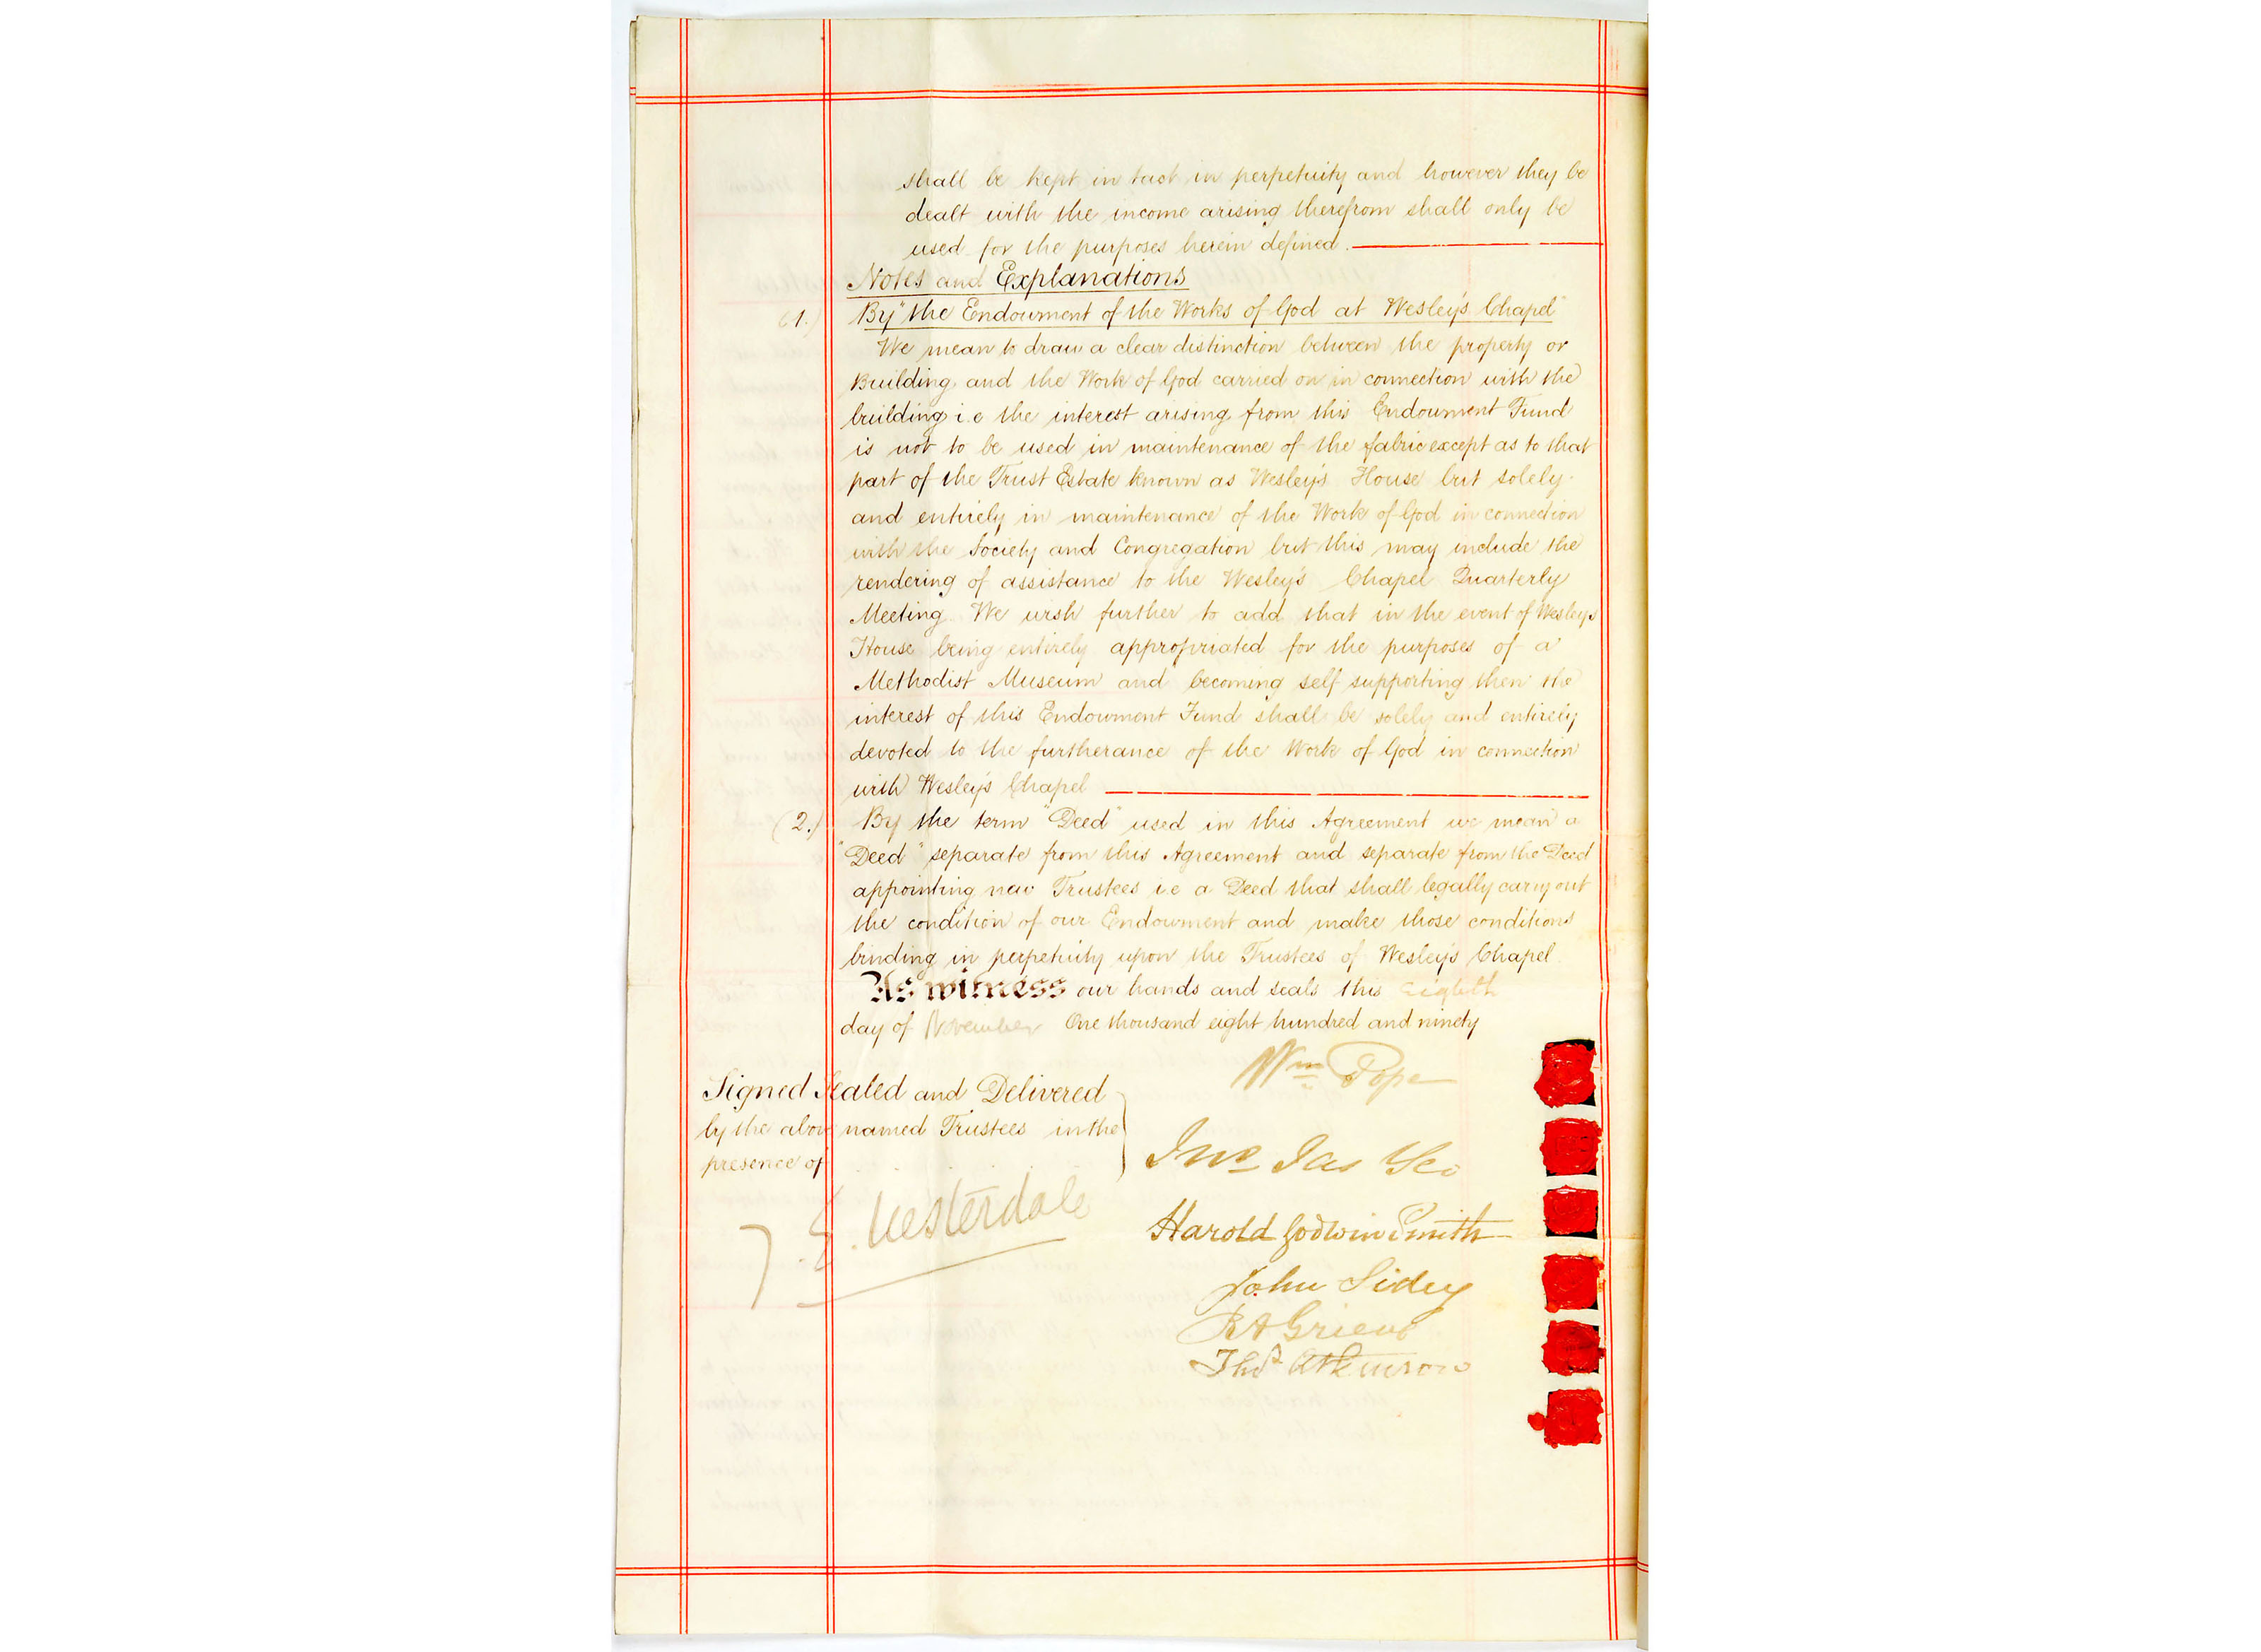 shall be kept in tact in perpetuity and however they be
dealt with the income arising therefrom shall only be
used for the purposes herein defined.
Notes and Explanations
(1.) By "the Endowment of the Works of God at Wesley's Chapel"
We mean to draw a clear distinction between the property or
Building and the Work of God carried on in connection with the
building i.e the interest arising from this Endowment Fund
is not to be used in maintenance of the fabric except as to that
part of the Trust Estate known as Wesley's House but solely
and entirely in maintenance of the Work of God in connection
with the Society and Congregation but this may include the
rendering of assistance to the Wesley's Chapel Quarterly
Meeting. We wish further to add that in the event of Wesleys
House being entirely appropriated for the purposes of a
Methodist Museum and becoming self supporting then the
interest of this Endowment Fund shall be solely and entirely
devoted to the furtherance of the Work of God in connection
with Wesley's Chapel
(2.) By the term "Deed" used in this Agreement we mean a
"Deed" separate from this Agreement and separate from the Deed
appointing new Trustees i.e a Deed that shall legally carry out
the condition of our Endowment and make those conditions
binding in perpetuity upon the Trustees of Wesley's Chapel.
As witness our hands and seals this eighth
day of November One thousand eight hundred and ninety
Wm Pope
Signed Sealed and Delivered
by the above named Trustees in the
presence of
Jno Jas Geo
J. E. Westerdale
Harold Godwin Smith
John Sidey
R A Grieve
Thos Atkinson